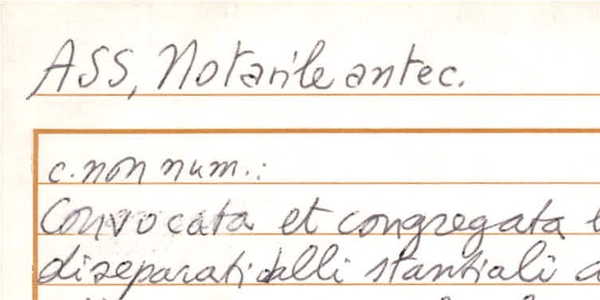 ASS, Notarile antec.
c. non num.:
Convocata et congregata
diseparati dalli stantiali